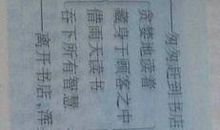 ——匆匆赶到书店
贪婪地读着
藏身于顾客之中
借雨天读书
吞下所有智慧
——离开书店,浑